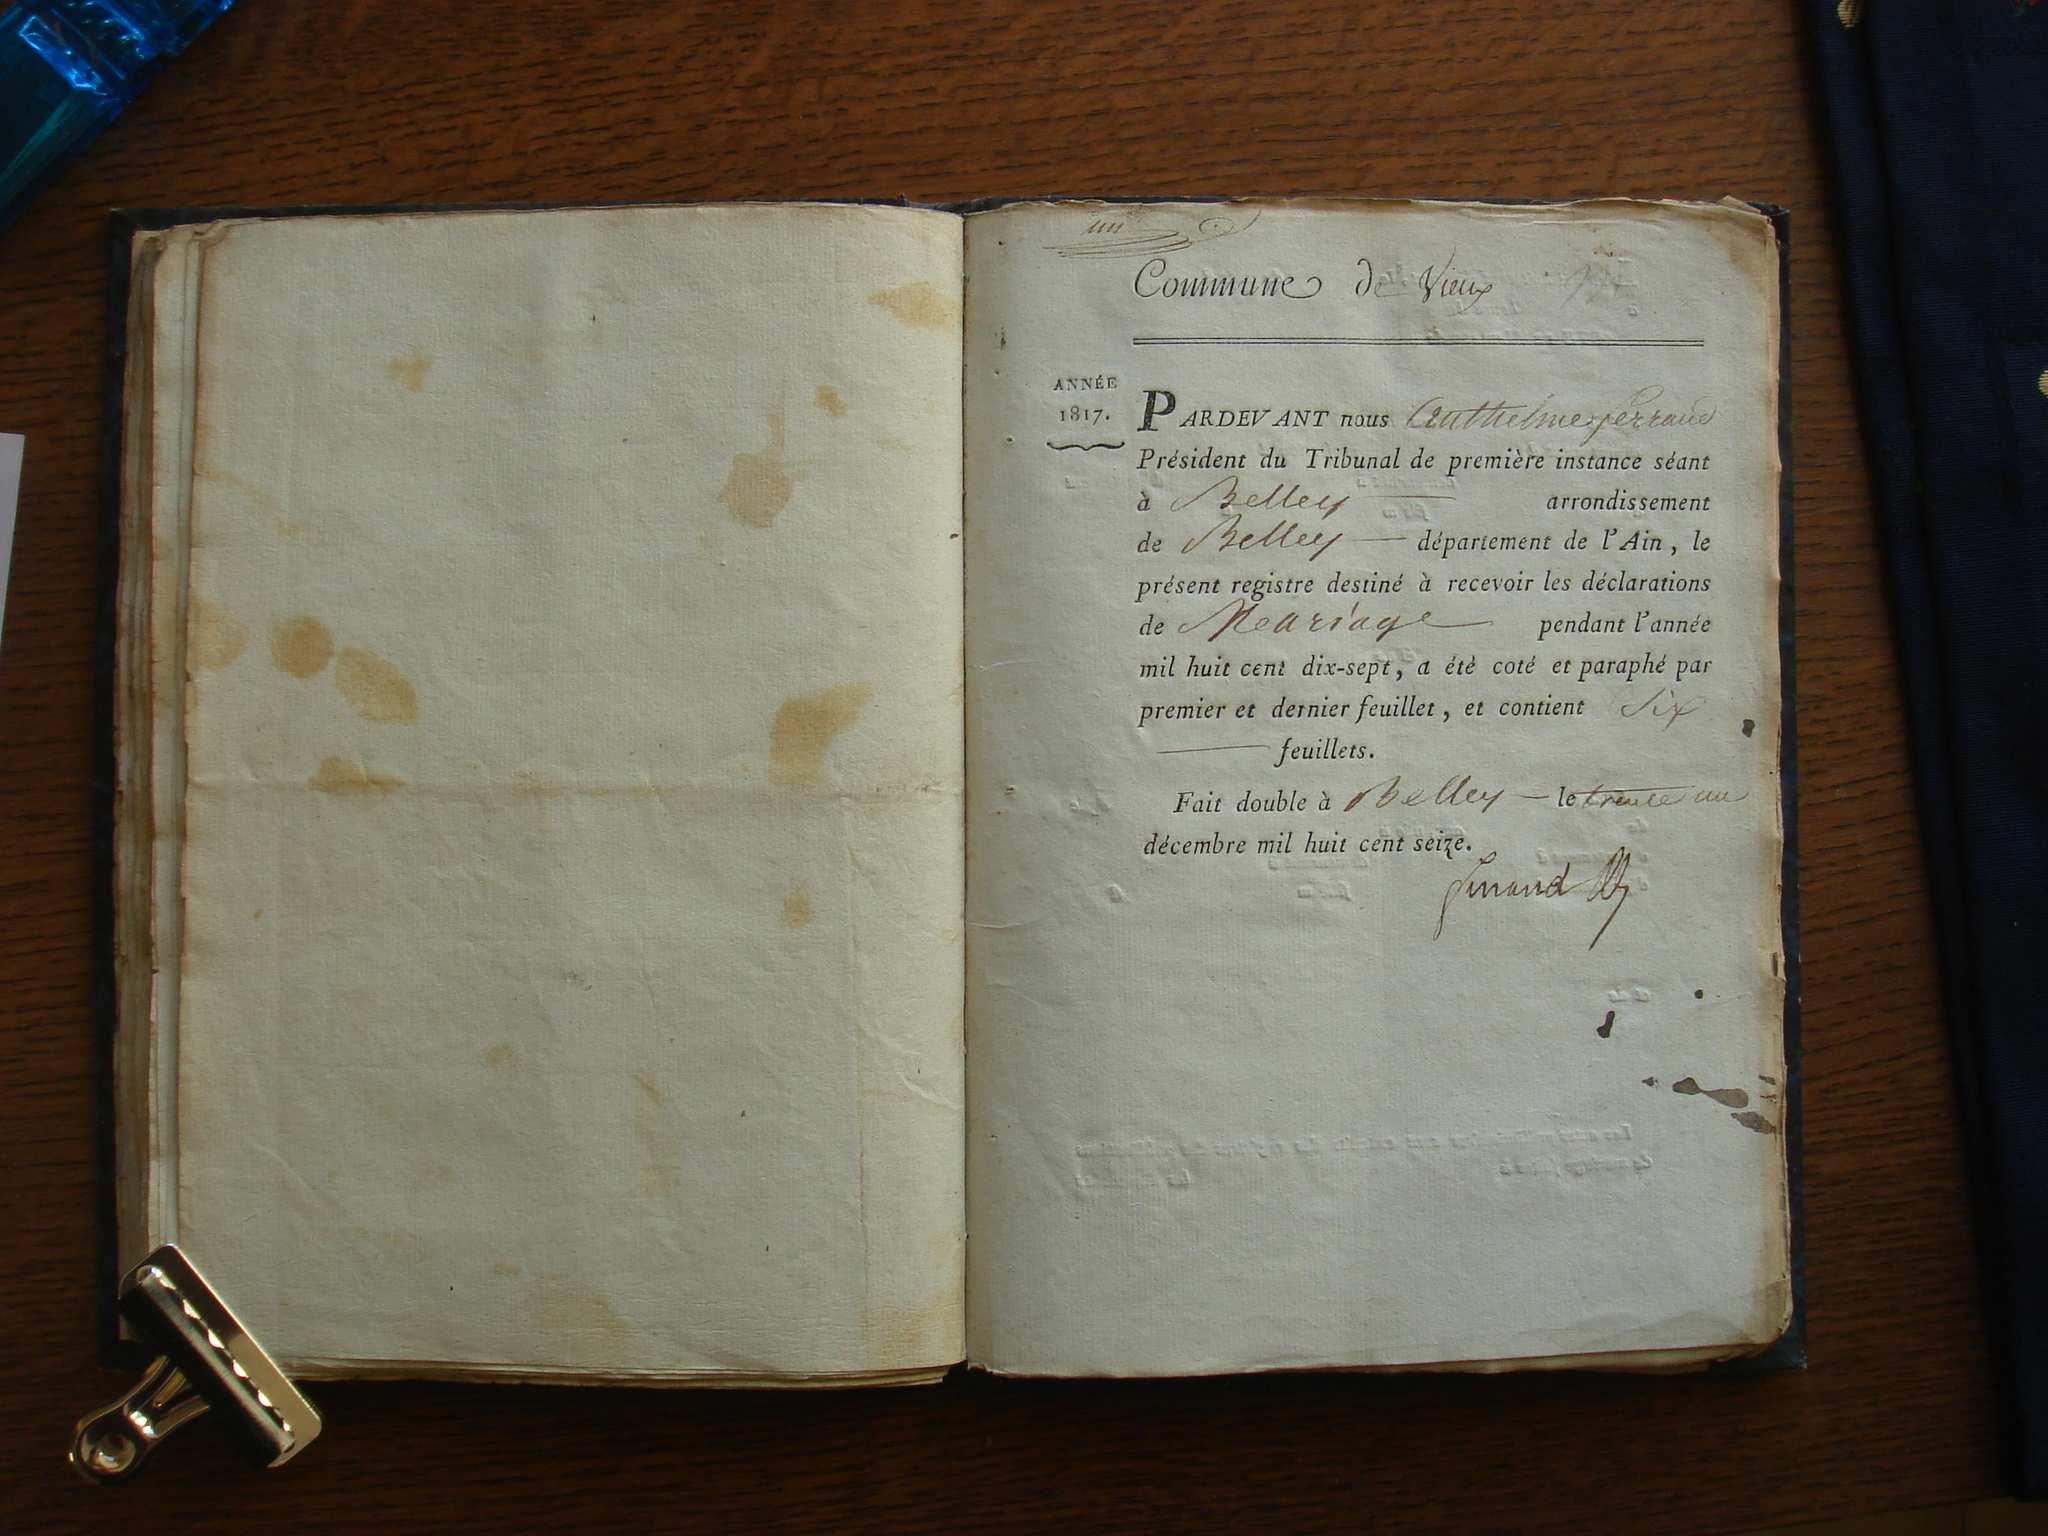 un
Commune de Vieu
ANNÉE
1817.
PARDEVANT nous Anthelme ferrand
Président du Tribunal de première instance séant
à Belley arrondissement
de Belley département de l'Ain, le
présent registre destiné à recevoir les déclarations
de Mariage pendant l'année
mil huit cent dix-sept, a été coté et paraphé par
premier et dernier feuillet, et contient Six
feuillets.
Fait double à Belley le trente un
décembre mil huit cent seize.
ferrand